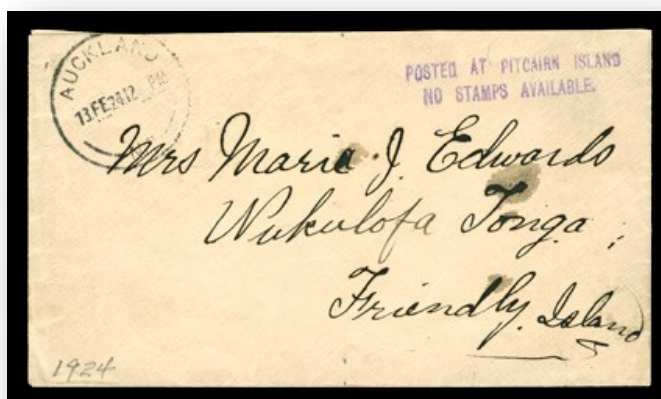 AUCKLAND
13 FE 24 12 PM
POSTED AT PITCAIRN ISLAND
NO STAMPS AVAILABLE.
Mrs Marie J. Edwards
Nukulofa Tonga,
Friendly Island
1924